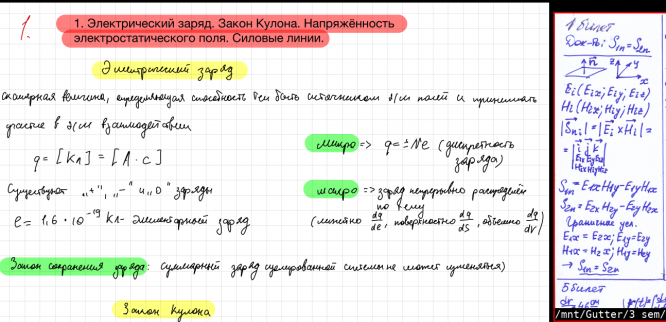 1.
1. Электрический заряд. Закон Кулона. Напряжённость
электростатического поля. Силовые линии.
Электрический заряд
скалярная величина, определяющая способность тел быть источником э/м полей и принимать
участие в э/м взаимодействии
q = [Кл] = [А · с]
микро => q = ± Ne (дискретность
заряда)
Существуют "+", "-" и "0" заряды
макро => заряд непрерывно распределён
по телу
e = 1,6 · 10⁻¹⁹ Кл - элементарный заряд
(линейно dq/dl, поверхностно dq/dS, объёмно dq/dV)
Закон сохранения заряда: суммарный заряд изолированной системы не может изменяться)
Закон Кулона
1 билет
Док-ть: S₁n = S₂n
n z y
x
Ei (Eix; Eiy; Eiz)
Hi (Hix; Hiy; Hiz)
|Sni| = |Ei × Hi| =
= | i j k |
Eix Eiy Eiz
Hix Hiy Hiz
S₁n = E₁x H₁y - E₁y H₁x
S₂n = E₂x H₂y - E₂y H₂x
Граничные усл.
E₁x = E₂x; E₁y = E₂y
H₁x = H₂x; H₁y = H₂y
→ S₁n = S₂n
5 билет
/mnt/Gutter/3 sem/